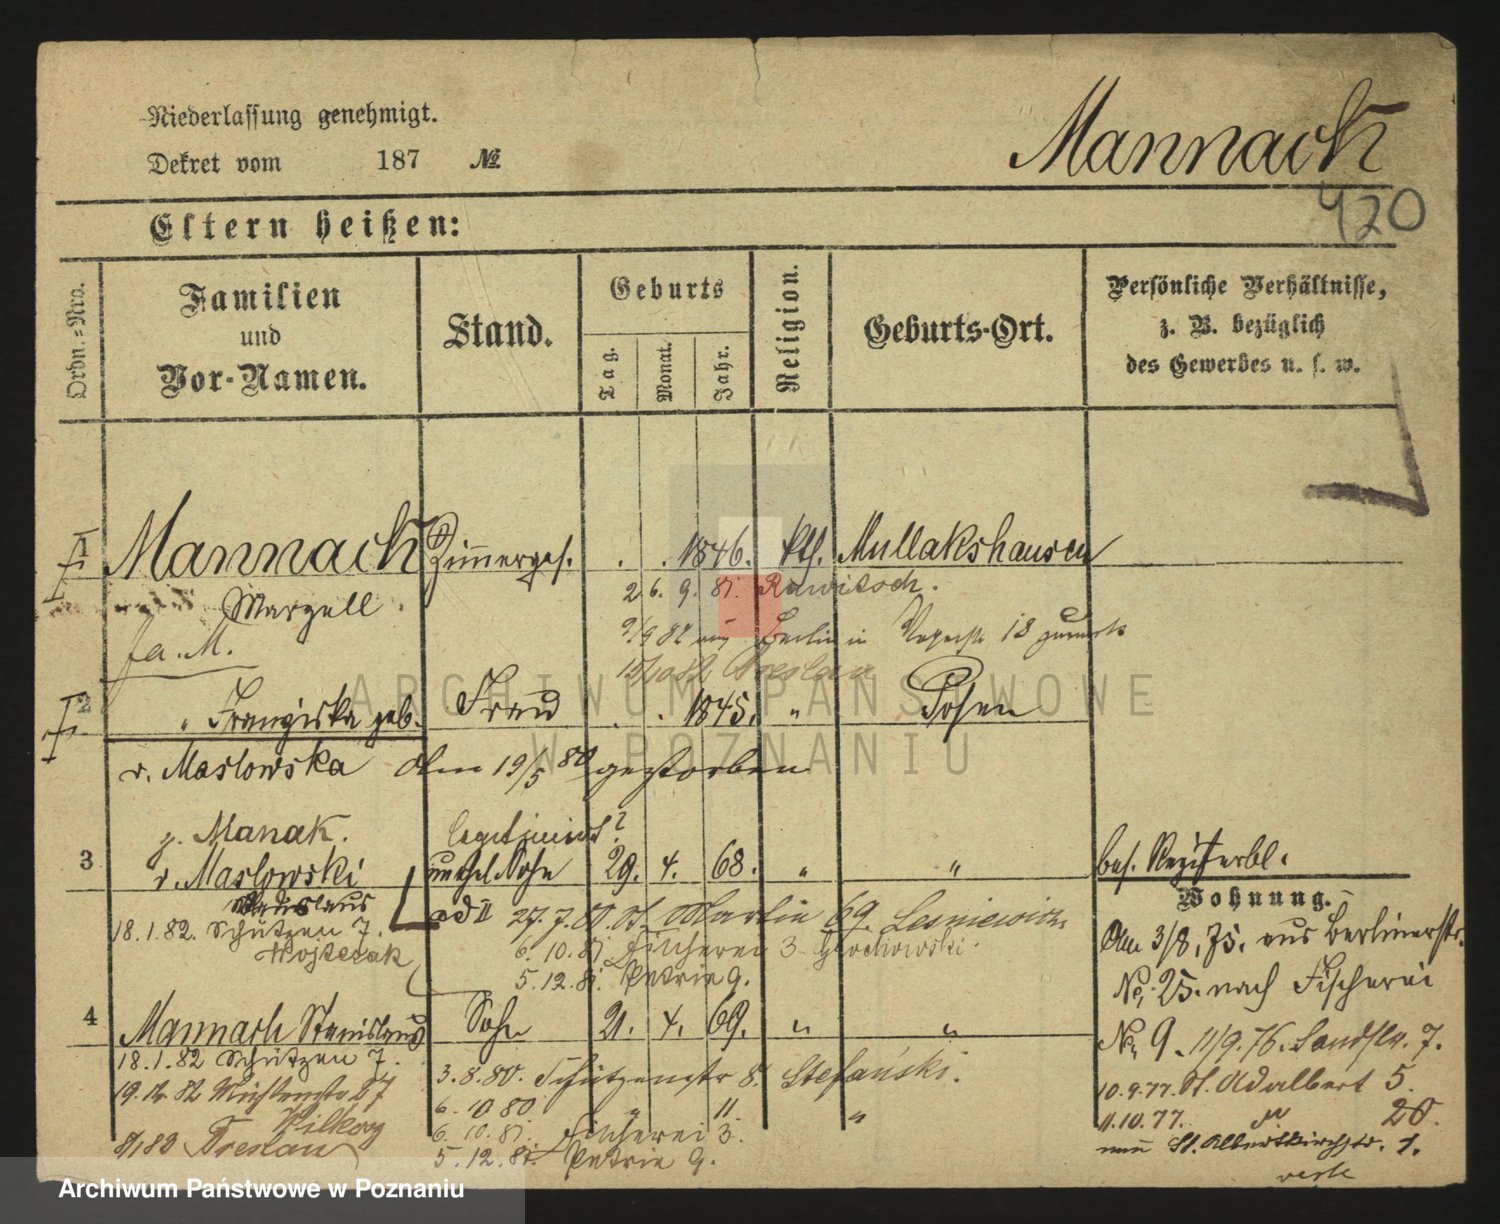 Niederlassung genehmigt.
Dekret vom 187 №
Mannach
420
Eltern heißen:
Ordn.-Nro.
Familien
und
Vor-Namen.
Stand.
Geburts
Tag.
Monat.
Jahr.
Religion.
Geburts-Ort.
Persönliche Verhältnisse,
z. B. bezüglich
des Gewerbes u. s. w.
1 Mannach Zimmerges. . . 1846. kth. Mullakshausen
Marzell 26. 9. 81. Rawitsch.
fa. M. Berlin in 18 zurück
Breslau
2 " Franziska geb. Frau . . 1845. " Posen
v. Maslowska Am 19/5 80 gestorben
z. Manak. legitimirt?
3 v. Maslowski unehel. Sohn 29. 4. 68. " "
Wladislaus ad II 27. 7. 80 St. Martin 69. Lesniewicz
18. 1. 82. Schützen 7. 6. 10. 81. Fischerei 3 Grochowski.
Wojtczak 5. 12. 81. Petrie 9.
4 Mannach Stanislaus Sohn 21. 4. 69. " "
18. 1. 82 Schützen 7. 3. 8. 80. Schützenstr 8. Stefański.
19. 12. 82 Mühlenstr 6. 10. 80 " 11. "
6. 10. 81. Fischerei 3.
Breslau 5. 12. 81. Petrie 9.
bes. Registerbl.
Wohnung.
Am 3/8. 75. aus Berlinerstr.
No. 25. nach Fischerei
No. 9. 11/9. 76. Landstr. 7.
10. 9. 77. St. Adalbert 5.
11. 10. 77. " 20.
St. Adalbertkirchstr. 1.
verte
ARCHIWUM PAŃSTWOWE
W POZNANIU
Archiwum Państwowe w Poznaniu